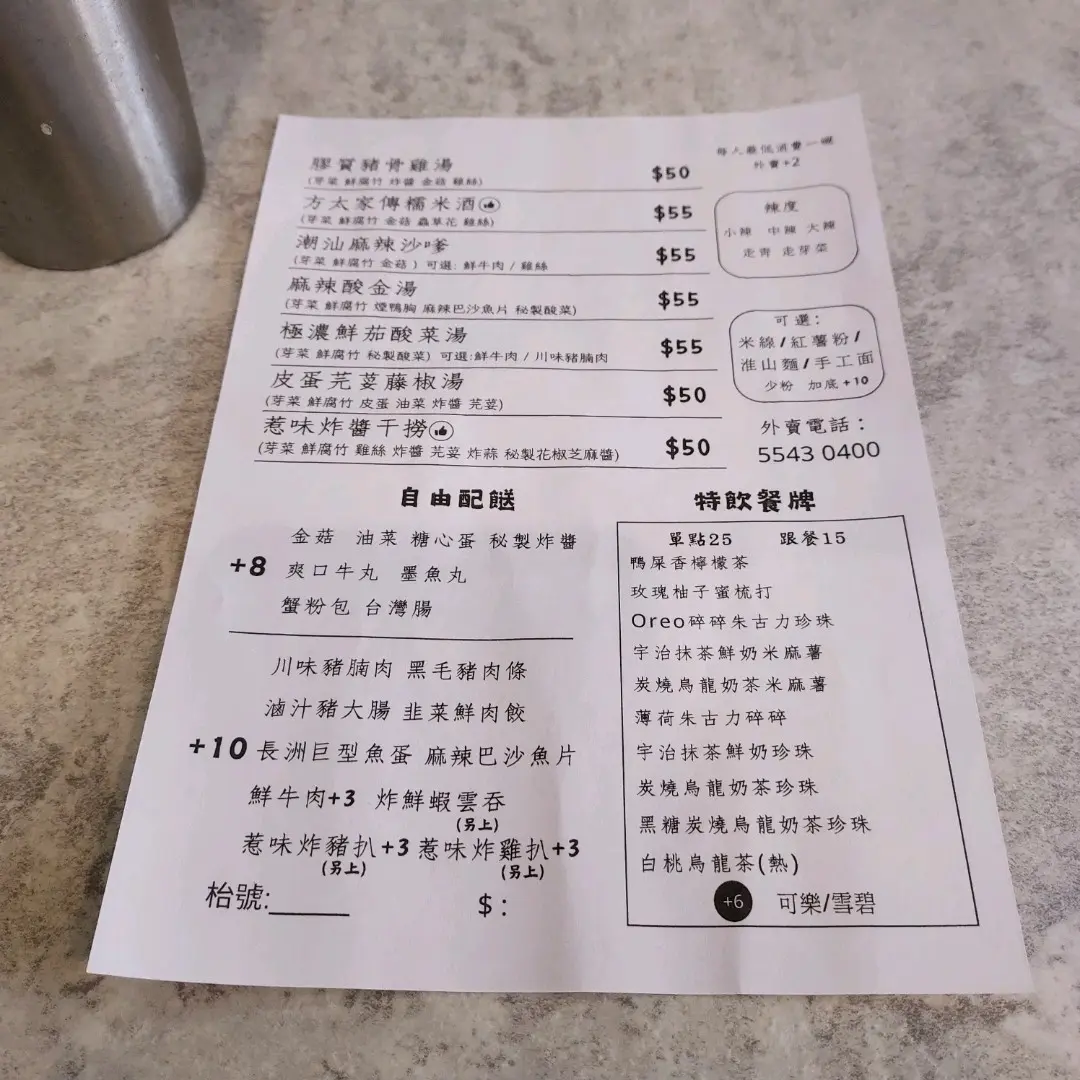 膠質豬骨雞湯 $50
(芽菜 鮮腐竹 炸醬 金菇 雞絲)
方太家傳糯米酒 $55
(芽菜 鮮腐竹 金菇 蟲草花 雞絲)
潮汕麻辣沙嗲 $55
(芽菜 鮮腐竹 金菇 ) 可選: 鮮牛肉 / 雞絲
麻辣酸金湯 $55
(芽菜 鮮腐竹 煙鴨胸 麻辣巴沙魚片 秘製酸菜)
極濃鮮茄酸菜湯 $55
(芽菜 鮮腐竹 秘製酸菜) 可選:鮮牛肉 / 川味豬腩肉
皮蛋芫荽藤椒湯 $50
(芽菜 鮮腐竹 皮蛋 油菜 炸醬 芫荽)
惹味炸醬干撈 $50
(芽菜 鮮腐竹 雞絲 炸醬 芫荽 炸蒜 秘製花椒芝麻醬)
每人最低消費一碗
外賣+2
辣度
小辣 中辣 大辣
走青 走芽菜
可選:
米線/紅薯粉/
淮山麵/手工面
少粉 加底+10
外賣電話:
5543 0400
自由配餸
金菇 油菜 糖心蛋 秘製炸醬
+8 爽口牛丸 墨魚丸
蟹粉包 台灣腸
川味豬腩肉 黑毛豬肉條
滷汁豬大腸 韭菜鮮肉餃
+10 長洲巨型魚蛋 麻辣巴沙魚片
鮮牛肉+3 炸鮮蝦雲吞
(另上)
惹味炸豬扒+3 惹味炸雞扒+3
(另上) (另上)
枱號:______ $:
特飲餐牌
單點25 跟餐15
鴨屎香檸檬茶
玫瑰柚子蜜梳打
Oreo碎碎朱古力珍珠
宇治抹茶鮮奶米麻薯
炭燒烏龍奶茶米麻薯
薄荷朱古力碎碎
宇治抹茶鮮奶珍珠
炭燒烏龍奶茶珍珠
黑糖炭燒烏龍奶茶珍珠
白桃烏龍茶(熱)
+6 可樂/雪碧